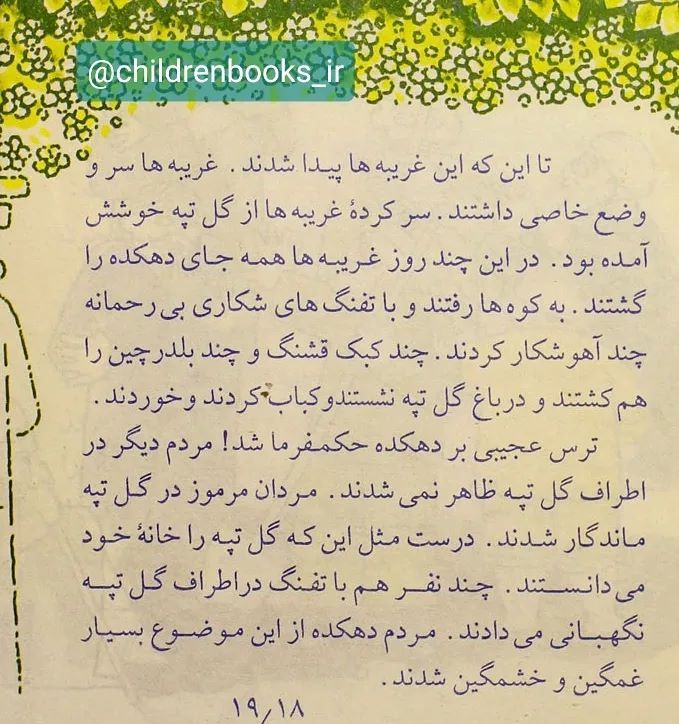 @childrenbooks_ir
تا این که این غریبه ها پیدا شدند. غریبه ها سر و
وضع خاصی داشتند. سر کردهٔ غریبه ها از گل تپه خوشش
آمده بود. در این چند روز غریبه ها همه جای دهکده را
گشتند. به کوه ها رفتند و با تفنگ های شکاری بی رحمانه
چند آهو شکار کردند. چند کبک قشنگ و چند بلدرچین را
هم کشتند و درباغ گل تپه نشستندوکباب کردند وخوردند.
ترس عجیبی بر دهکده حکمفرما شد! مردم دیگر در
اطراف گل تپه ظاهر نمی شدند. مردان مرموز در گل تپه
ماندگار شدند. درست مثل این که گل تپه را خانهٔ خود
می دانستند. چند نفر هم با تفنگ دراطراف گل تپه
نگهبانی می دادند. مردم دهکده از این موضوع بسیار
غمگین و خشمگین شدند.
۱۹٫۱۸